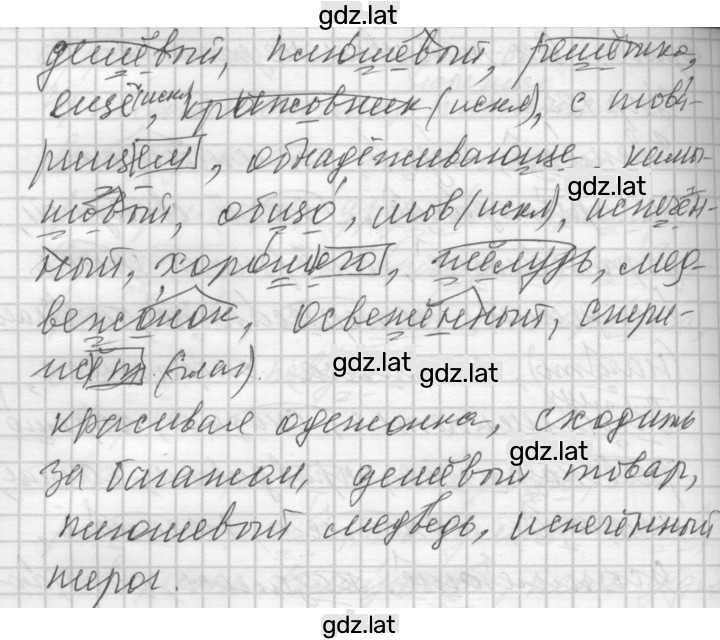 gdz.lat
дешёвый, плюшевый, решётка,
ещё (искл), крыжовник (искл), с това-
рищем, обнадёживающе камы-
gdz.lat
шовый, общо, шов (искл), испечён-
ный, хорошего, жёлудь, мед-
вежонок, освежённый, стри-
жёт (глаг).
gdz.lat gdz.lat
красивая одежонка, сходить
gdz.lat
за багажом, дешёвый товар,
плюшевый медведь, испечённый
пирог.
gdz.lat